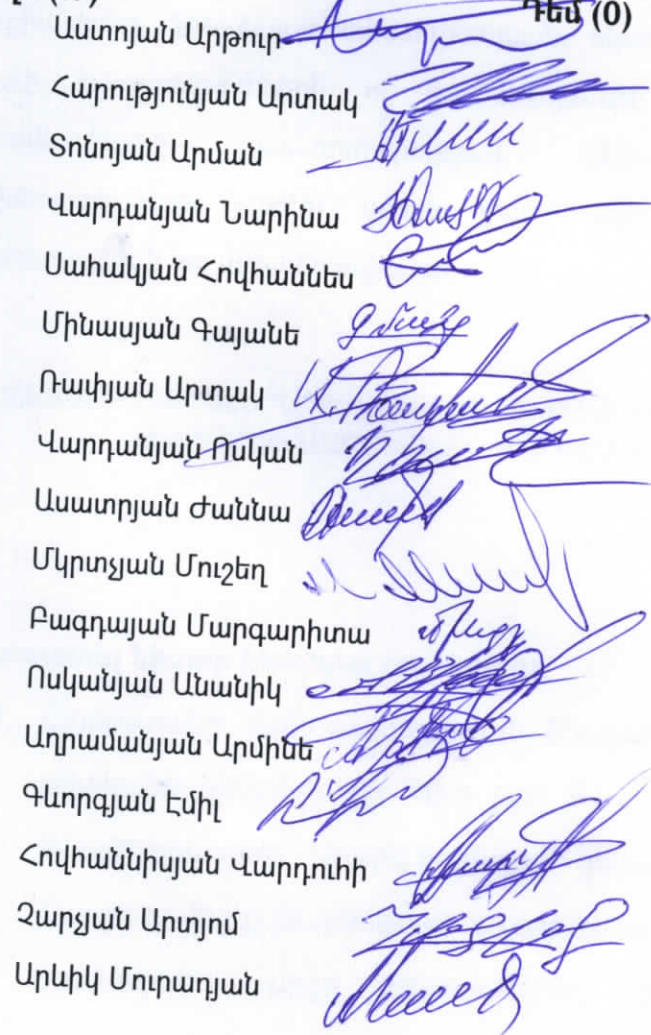 Դեմ (0)
Աստոյան Արթուր
Հարությունյան Արտակ
Տոնոյան Արման
Վարդանյան Նարինա
Սահակյան Հովհաննես
Մինասյան Գայանե
Ռափյան Արտակ
Վարդանյան Ոսկան
Ասատրյան Ժաննա
Մկրտչյան Մուշեղ
Բագդայան Մարգարիտա
Ոսկանյան Անանիկ
Աղրամանյան Արմինե
Գևորգյան Էմիլ
Հովհաննիսյան Վարդուհի
Չարչյան Արտյոմ
Արևիկ Մուրադյան